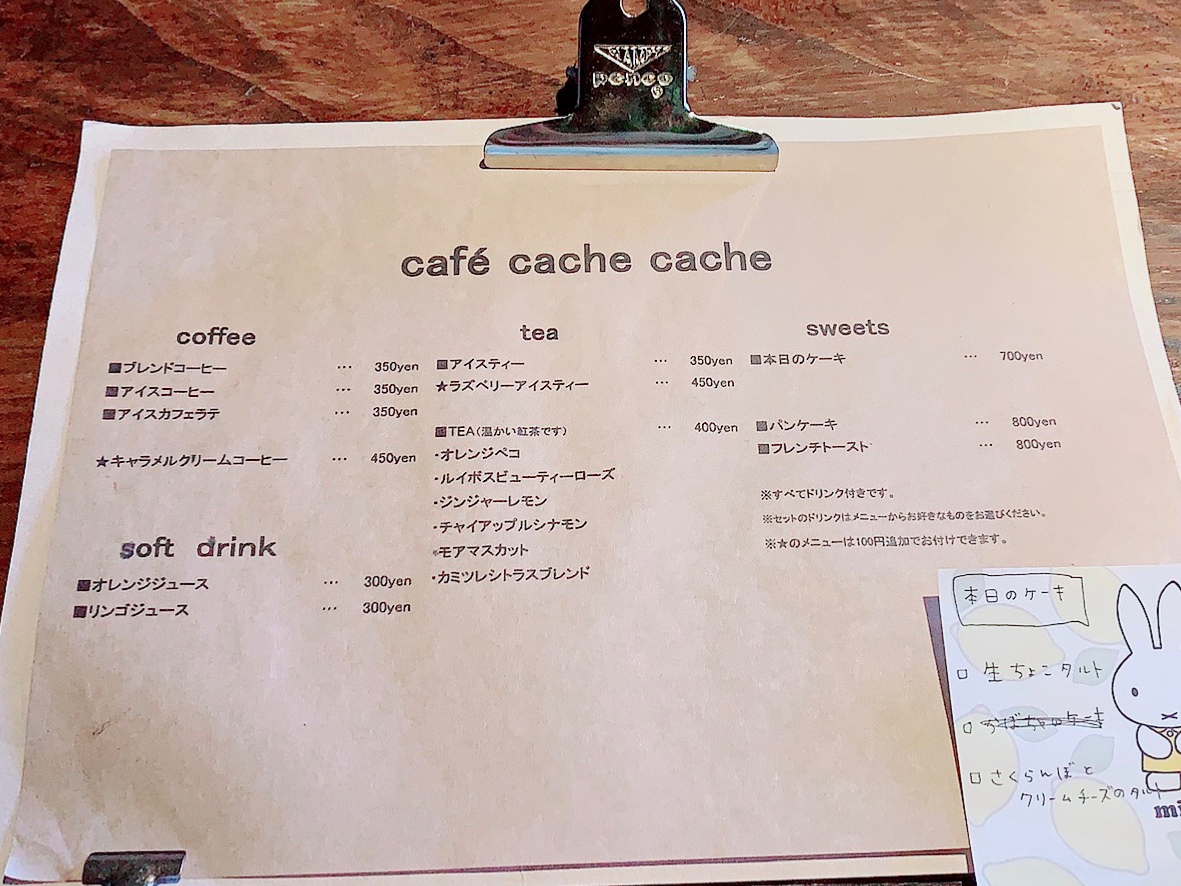 CLAMPY
penco
café cache cache
coffee
■ブレンドコーヒー … 350yen
■アイスコーヒー … 350yen
■アイスカフェラテ … 350yen
★キャラメルクリームコーヒー … 450yen
soft drink
■オレンジジュース … 300yen
■リンゴジュース … 300yen
tea
■アイスティー … 350yen
★ラズベリーアイスティー … 450yen
■TEA(温かい紅茶です) … 400yen
・オレンジペコ
・ルイボスビューティーローズ
・ジンジャーレモン
・チャイアップルシナモン
・モアマスカット
・カミツレシトラスブレンド
sweets
■本日のケーキ … 700yen
■パンケーキ … 800yen
■フレンチトースト … 800yen
※すべてドリンク付きです。
※セットのドリンクはメニューからお好きなものをお選びください。
※★のメニューは100円追加でお付けできます。
本日のケーキ
□ 生ちょこタルト
□ かぼちゃのケーキ
□ さくらんぼと
クリームチーズのタルト
mi